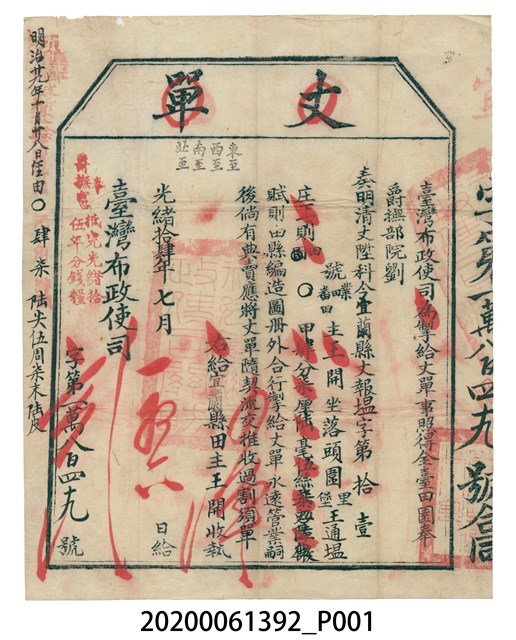 丈單
臺灣布政使司為掣給丈單事照得全臺田園奉
爵撫部院劉
奏明清丈陞科今宜蘭縣丈報塭字第拾壹
號 田主王開坐落頭圍堡里王通塭
庄 則田 〇甲肆分柒厘陸毫伍絲
賦則由縣編造圖冊外合行掣給丈單永遠管業嗣
後倘有典賣應將丈單隨契流交推收過割須單
右給宜蘭縣田主王開收執
光緒拾肆年七月 日給
臺灣布政使司
字第一萬八百四九號
東至
西至
南至
北至
奉
爵撫憲
抵完光緒拾
伍年分錢糧
號合同
明治廿九年十月廿八日任由〇肆柒陸
20200061392_P001